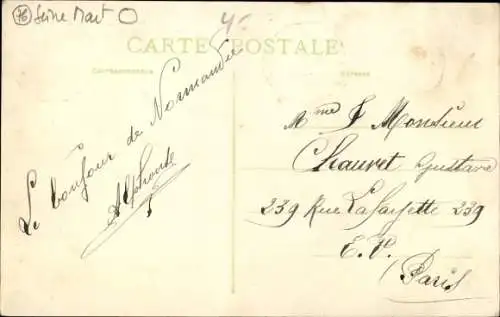 76 Seine Mart
CARTE POSTALE
Correspondance
Adresse
Le bonjour de Normandie
Alphonse
Mme & Monsieur
Chauvet Gustave
239 Rue Lafayette 239
E. V.
Paris